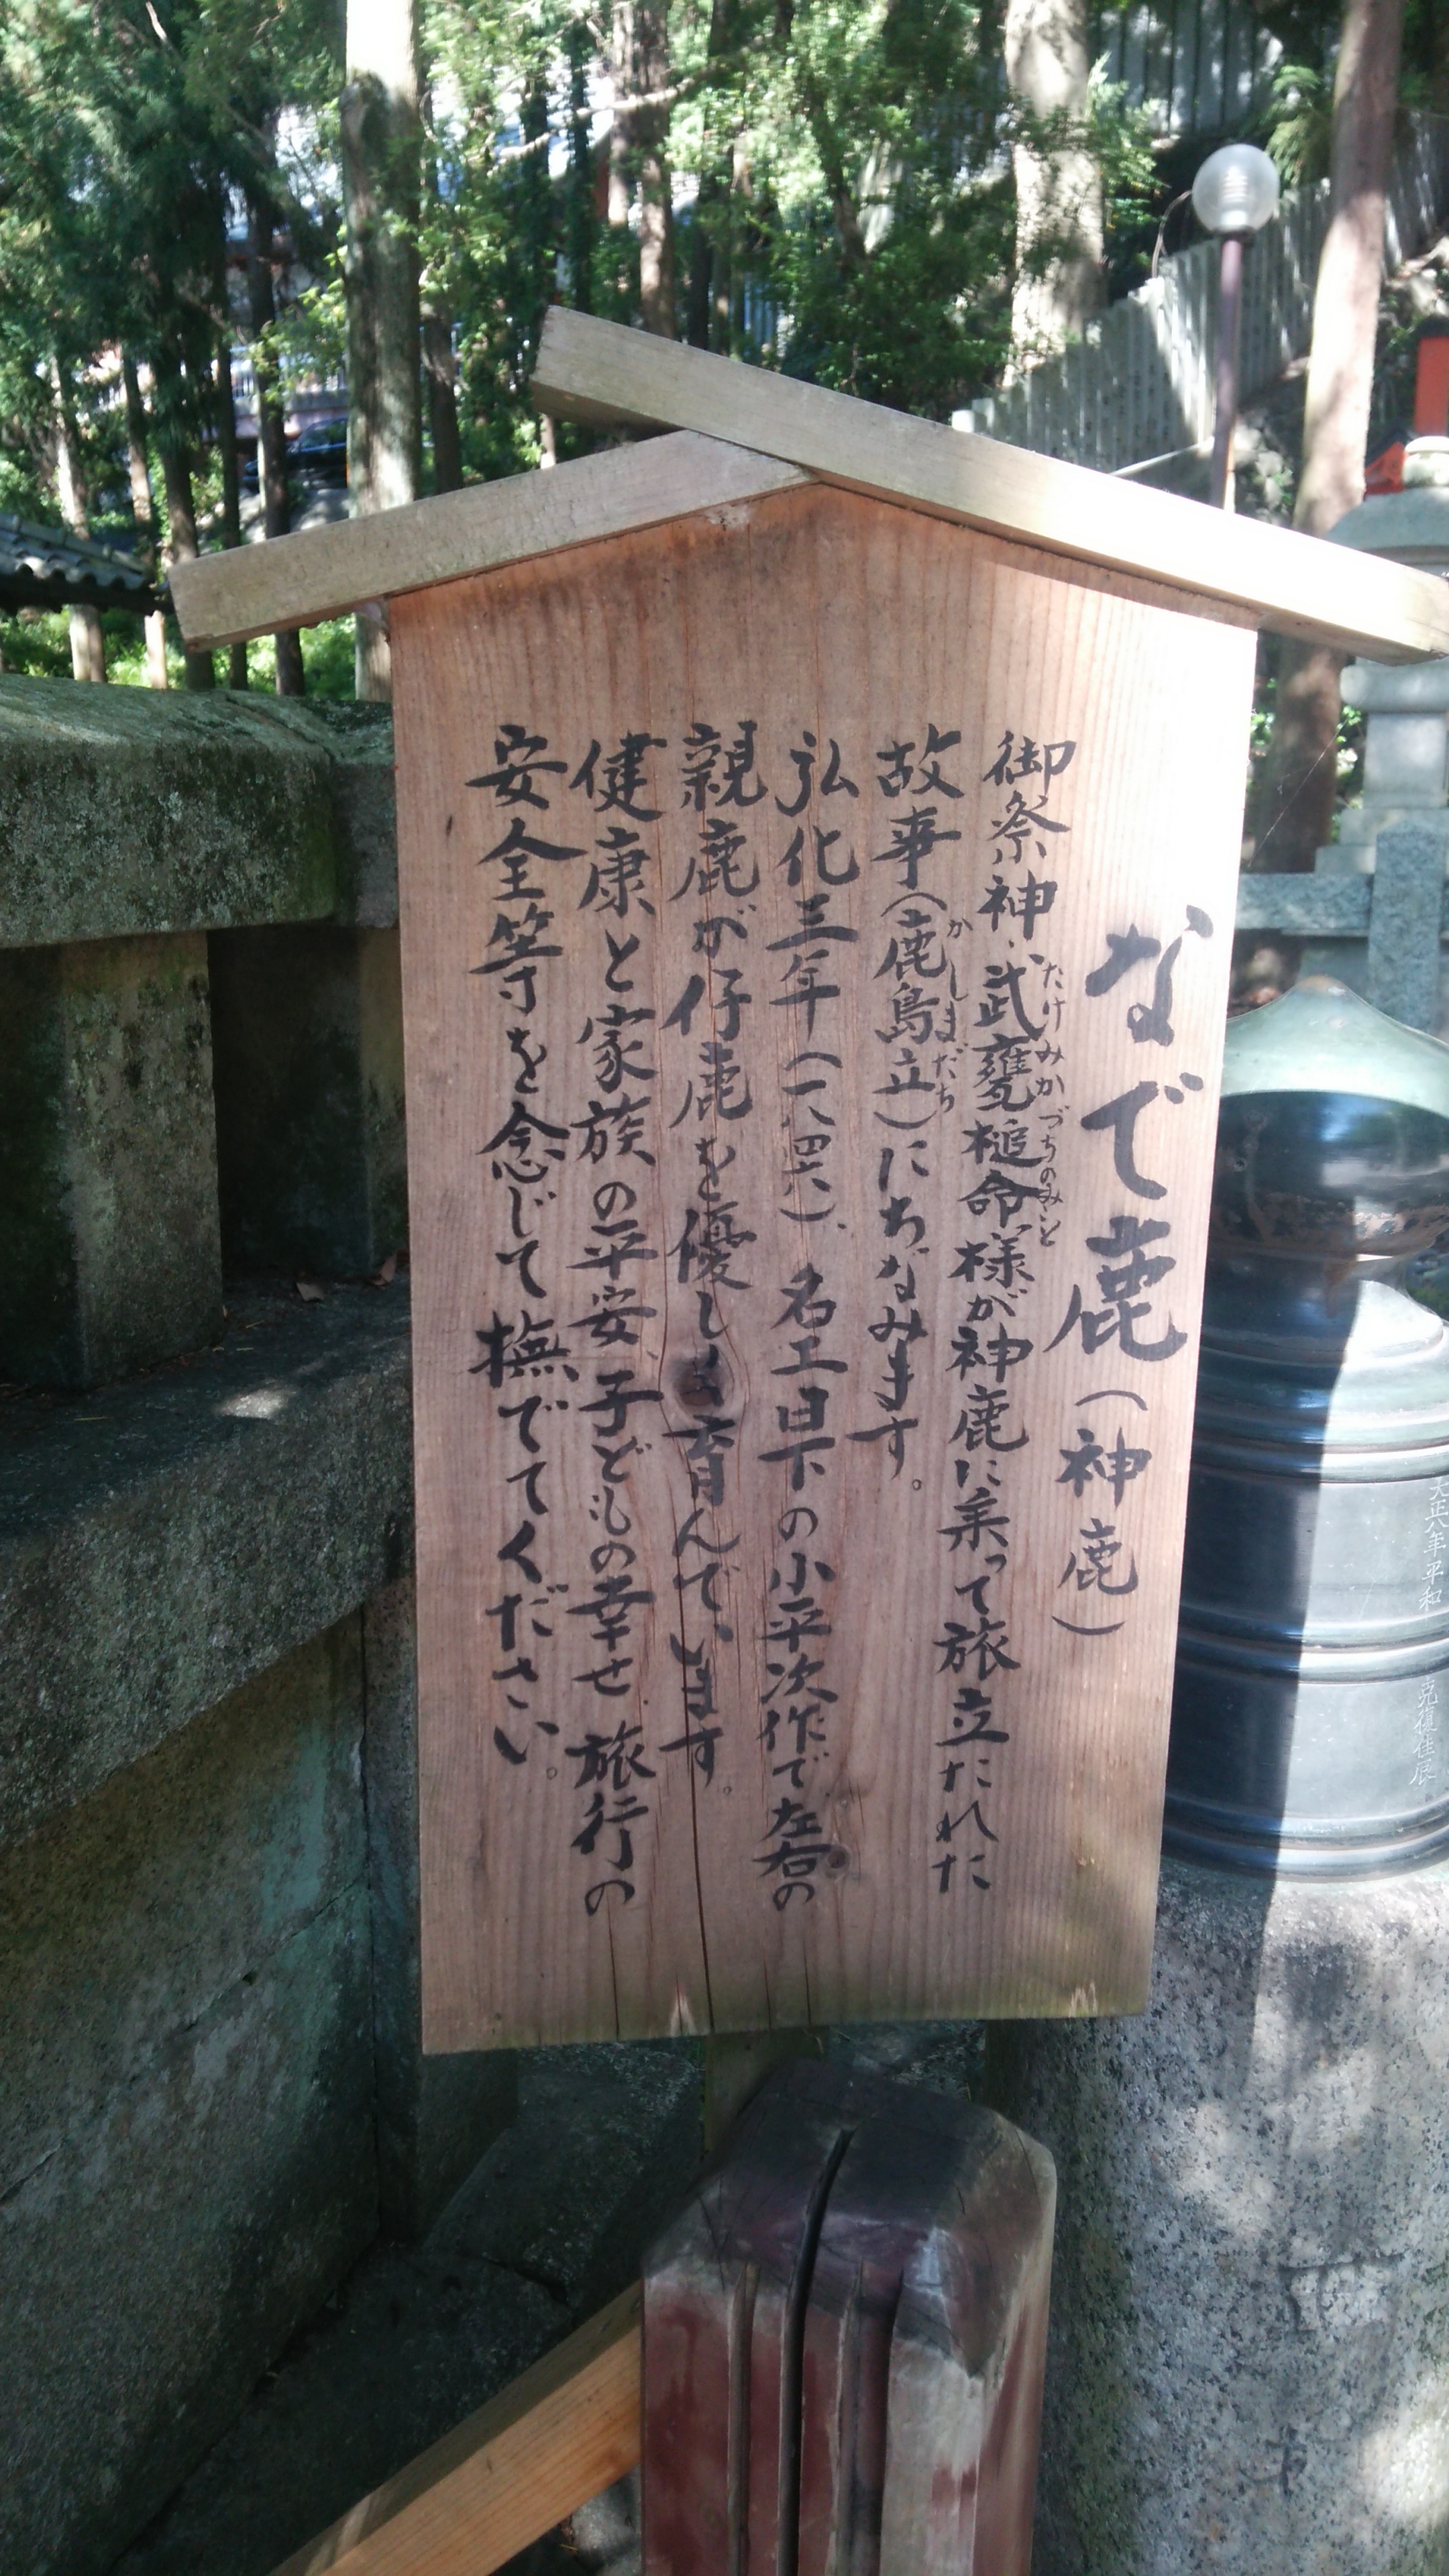 なで鹿（神鹿）
御祭神、武甕槌命様が神鹿に乗って旅立たれた
たけみかづちのみこと
故事（鹿島立）にちなみます。
かしまだち
弘化三年（一八四六）、名工日下の小平次作で左右の
親鹿が仔鹿を優しく育んでいます。
健康と家族の平安、子どもの幸せ、旅行の
安全等を念じて撫でてください。
大正八年平和
克復佳辰